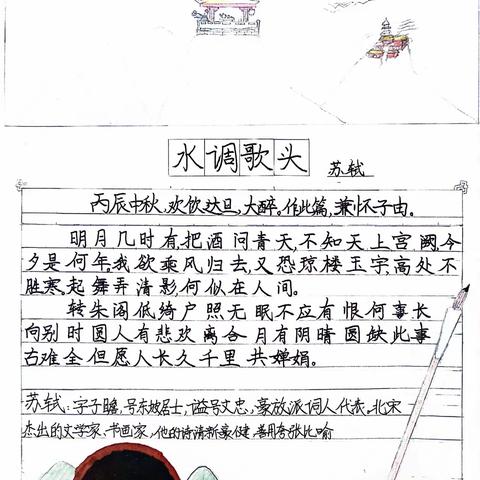 水调歌头
苏轼
丙辰中秋,欢饮达旦,大醉。作此篇,兼怀子由。
明月几时有,把酒问青天,不知天上宫阙,今
夕是何年。我欲乘风归去,又恐琼楼玉宇,高处不
胜寒。起舞弄清影,何似在人间。
转朱阁低绮户照无眠不应有恨何事长
向别时圆人有悲欢离合月有阴晴圆缺此事
古难全但愿人长久千里共婵娟。
苏轼:字子瞻,号东坡居士,谥号文忠,豪放派词人代表,北宋
杰出的文学家、书画家,他的诗清新豪健,善用夸张比喻